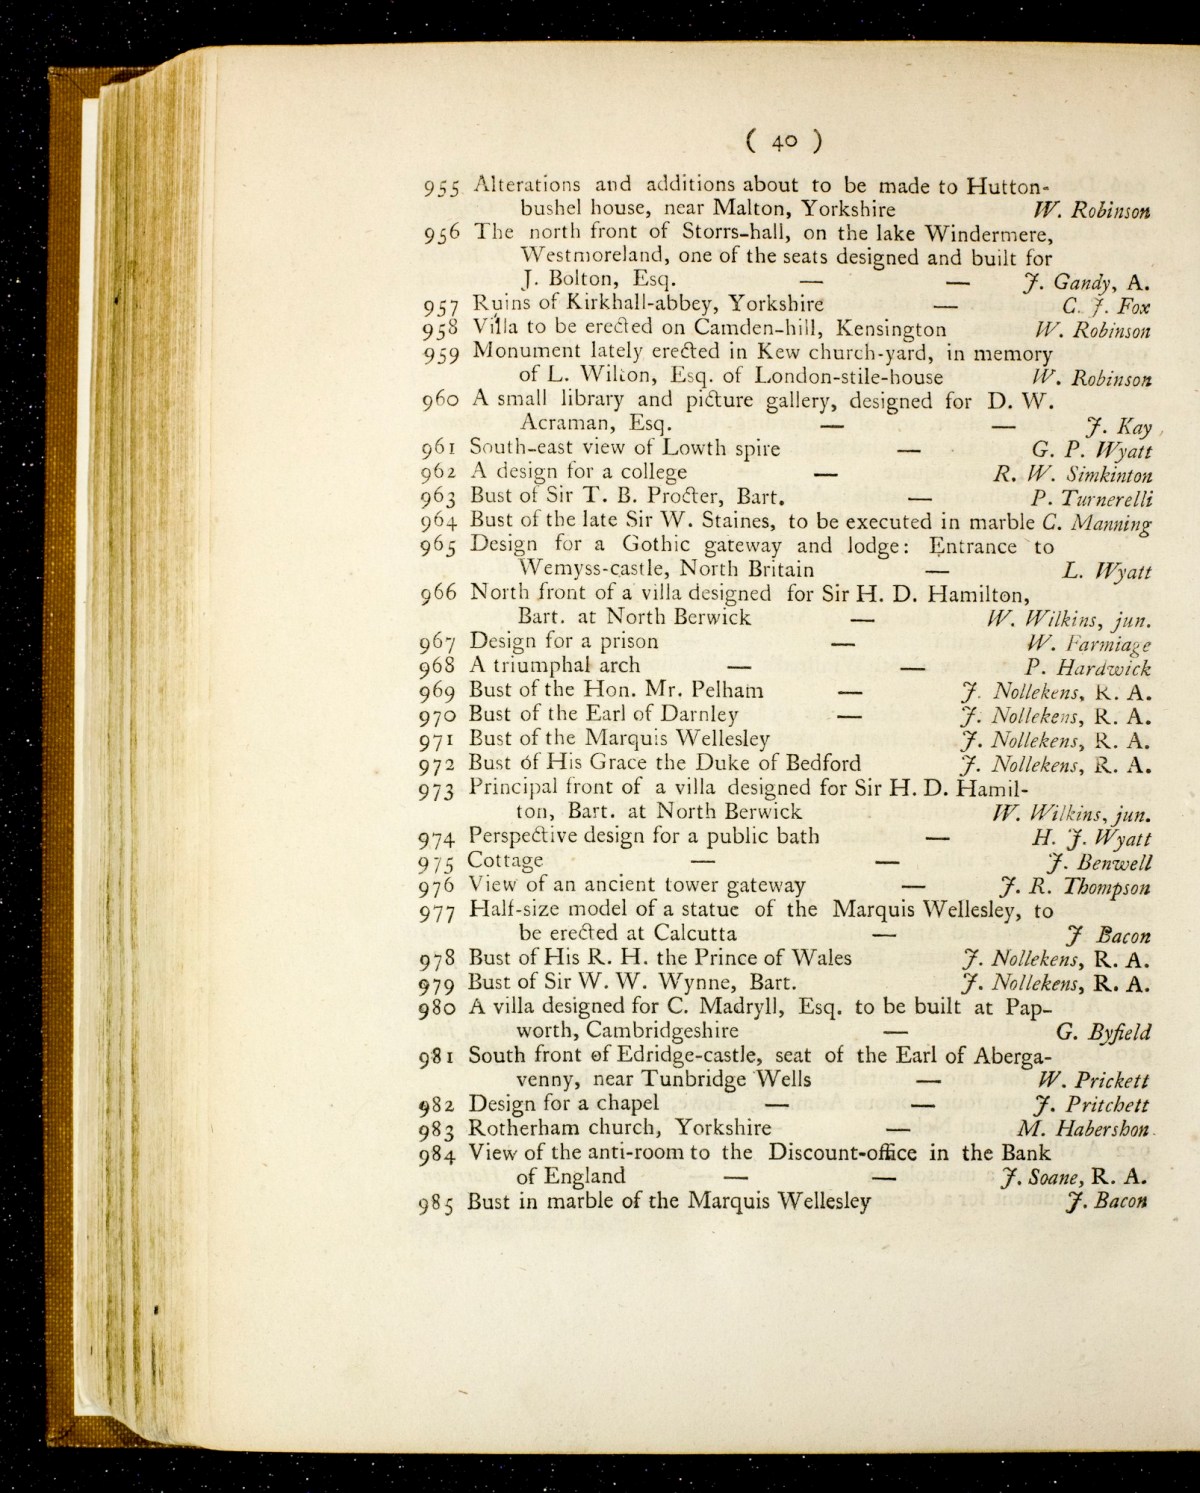 ( 40 )
955 Alterations and additions about to be made to Hutton-
bushel house, near Malton, Yorkshire W. Robinson
956 The north front of Storrs-hall, on the lake Windermere,
Westmoreland, one of the seats designed and built for
J. Bolton, Esq. — — J. Gandy, A.
957 Ruins of Kirkhall-abbey, Yorkshire — C. J. Fox
958 Villa to be erected on Camden-hill, Kensington W. Robinson
959 Monument lately erected in Kew church-yard, in memory
of L. Wilton, Esq. of London-stile-house W. Robinson
960 A small library and picture gallery, designed for D. W.
Acraman, Esq. — — J. Kay
961 South-east view of Lowth spire — G. P. Wyatt
962 A design for a college — R. W. Simkinton
963 Bust of Sir T. B. Procter, Bart. — P. Turnerelli
964 Bust of the late Sir W. Staines, to be executed in marble C. Manning
965 Design for a Gothic gateway and lodge: Entrance to
Wemyss-castle, North Britain — L. Wyatt
966 North front of a villa designed for Sir H. D. Hamilton,
Bart. at North Berwick — W. Wilkins, jun.
967 Design for a prison — W. Farmiage
968 A triumphal arch — — P. Hardwick
969 Bust of the Hon. Mr. Pelham — J. Nollekens, R. A.
970 Bust of the Earl of Darnley — J. Nollekens, R. A.
971 Bust of the Marquis Wellesley J. Nollekens, R. A.
972 Bust of His Grace the Duke of Bedford J. Nollekens, R. A.
973 Principal front of a villa designed for Sir H. D. Hamil-
ton, Bart. at North Berwick W. Wilkins, jun.
974 Perspective design for a public bath — H. J. Wyatt
975 Cottage — — J. Benwell
976 View of an ancient tower gateway — J. R. Thompson
977 Half-size model of a statue of the Marquis Wellesley, to
be erected at Calcutta — J Bacon
978 Bust of His R. H. the Prince of Wales J. Nollekens, R. A.
979 Bust of Sir W. W. Wynne, Bart. J. Nollekens, R. A.
980 A villa designed for C. Madryll, Esq. to be built at Pap-
worth, Cambridgeshire — G. Byfield
981 South front of Edridge-castle, seat of the Earl of Aberga-
venny, near Tunbridge Wells — W. Prickett
982 Design for a chapel — — J. Pritchett
983 Rotherham church, Yorkshire — M. Habershon
984 View of the anti-room to the Discount-office in the Bank
of England — — J. Soane, R. A.
985 Bust in marble of the Marquis Wellesley J. Bacon